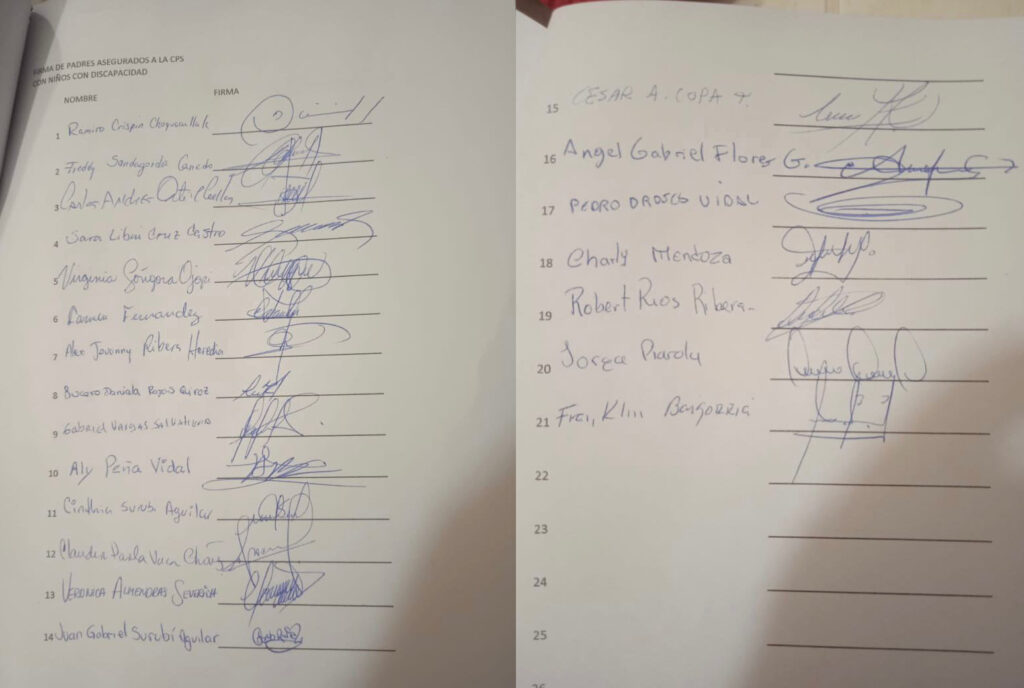 FIRMA DE PADRES ASEGURADOS A LA CPS
CON NIÑOS CON DISCAPACIDAD
NOMBRE FIRMA
1 Ramiro Crispin
2 Freddy Sandagorda Canedo
3 Carlos Andres
4 Sara Libni Cruz Castro
5 Virginia Góngora
6 Fernandez
7 Alex Jovanny Ribera Heredia
8 Daniela Rojas Quiroz
9 Gabriel Vargas Salvatierra
10 Aly Peña Vidal
11 Cinthia Surubi Aguilar
12 Claudia Paola Vaca Chávez
13 VERONICA ALMENDRAS
14 Juan Gabriel Surubí Aguilar
15 CESAR A. COPA T.
16 Angel Gabriel Flores G.
17 PEDRO OROSCO VIDAL
18 Charly Mendoza
19 Robert Rios Ribera
20 Jorge
21
22
23
24
25